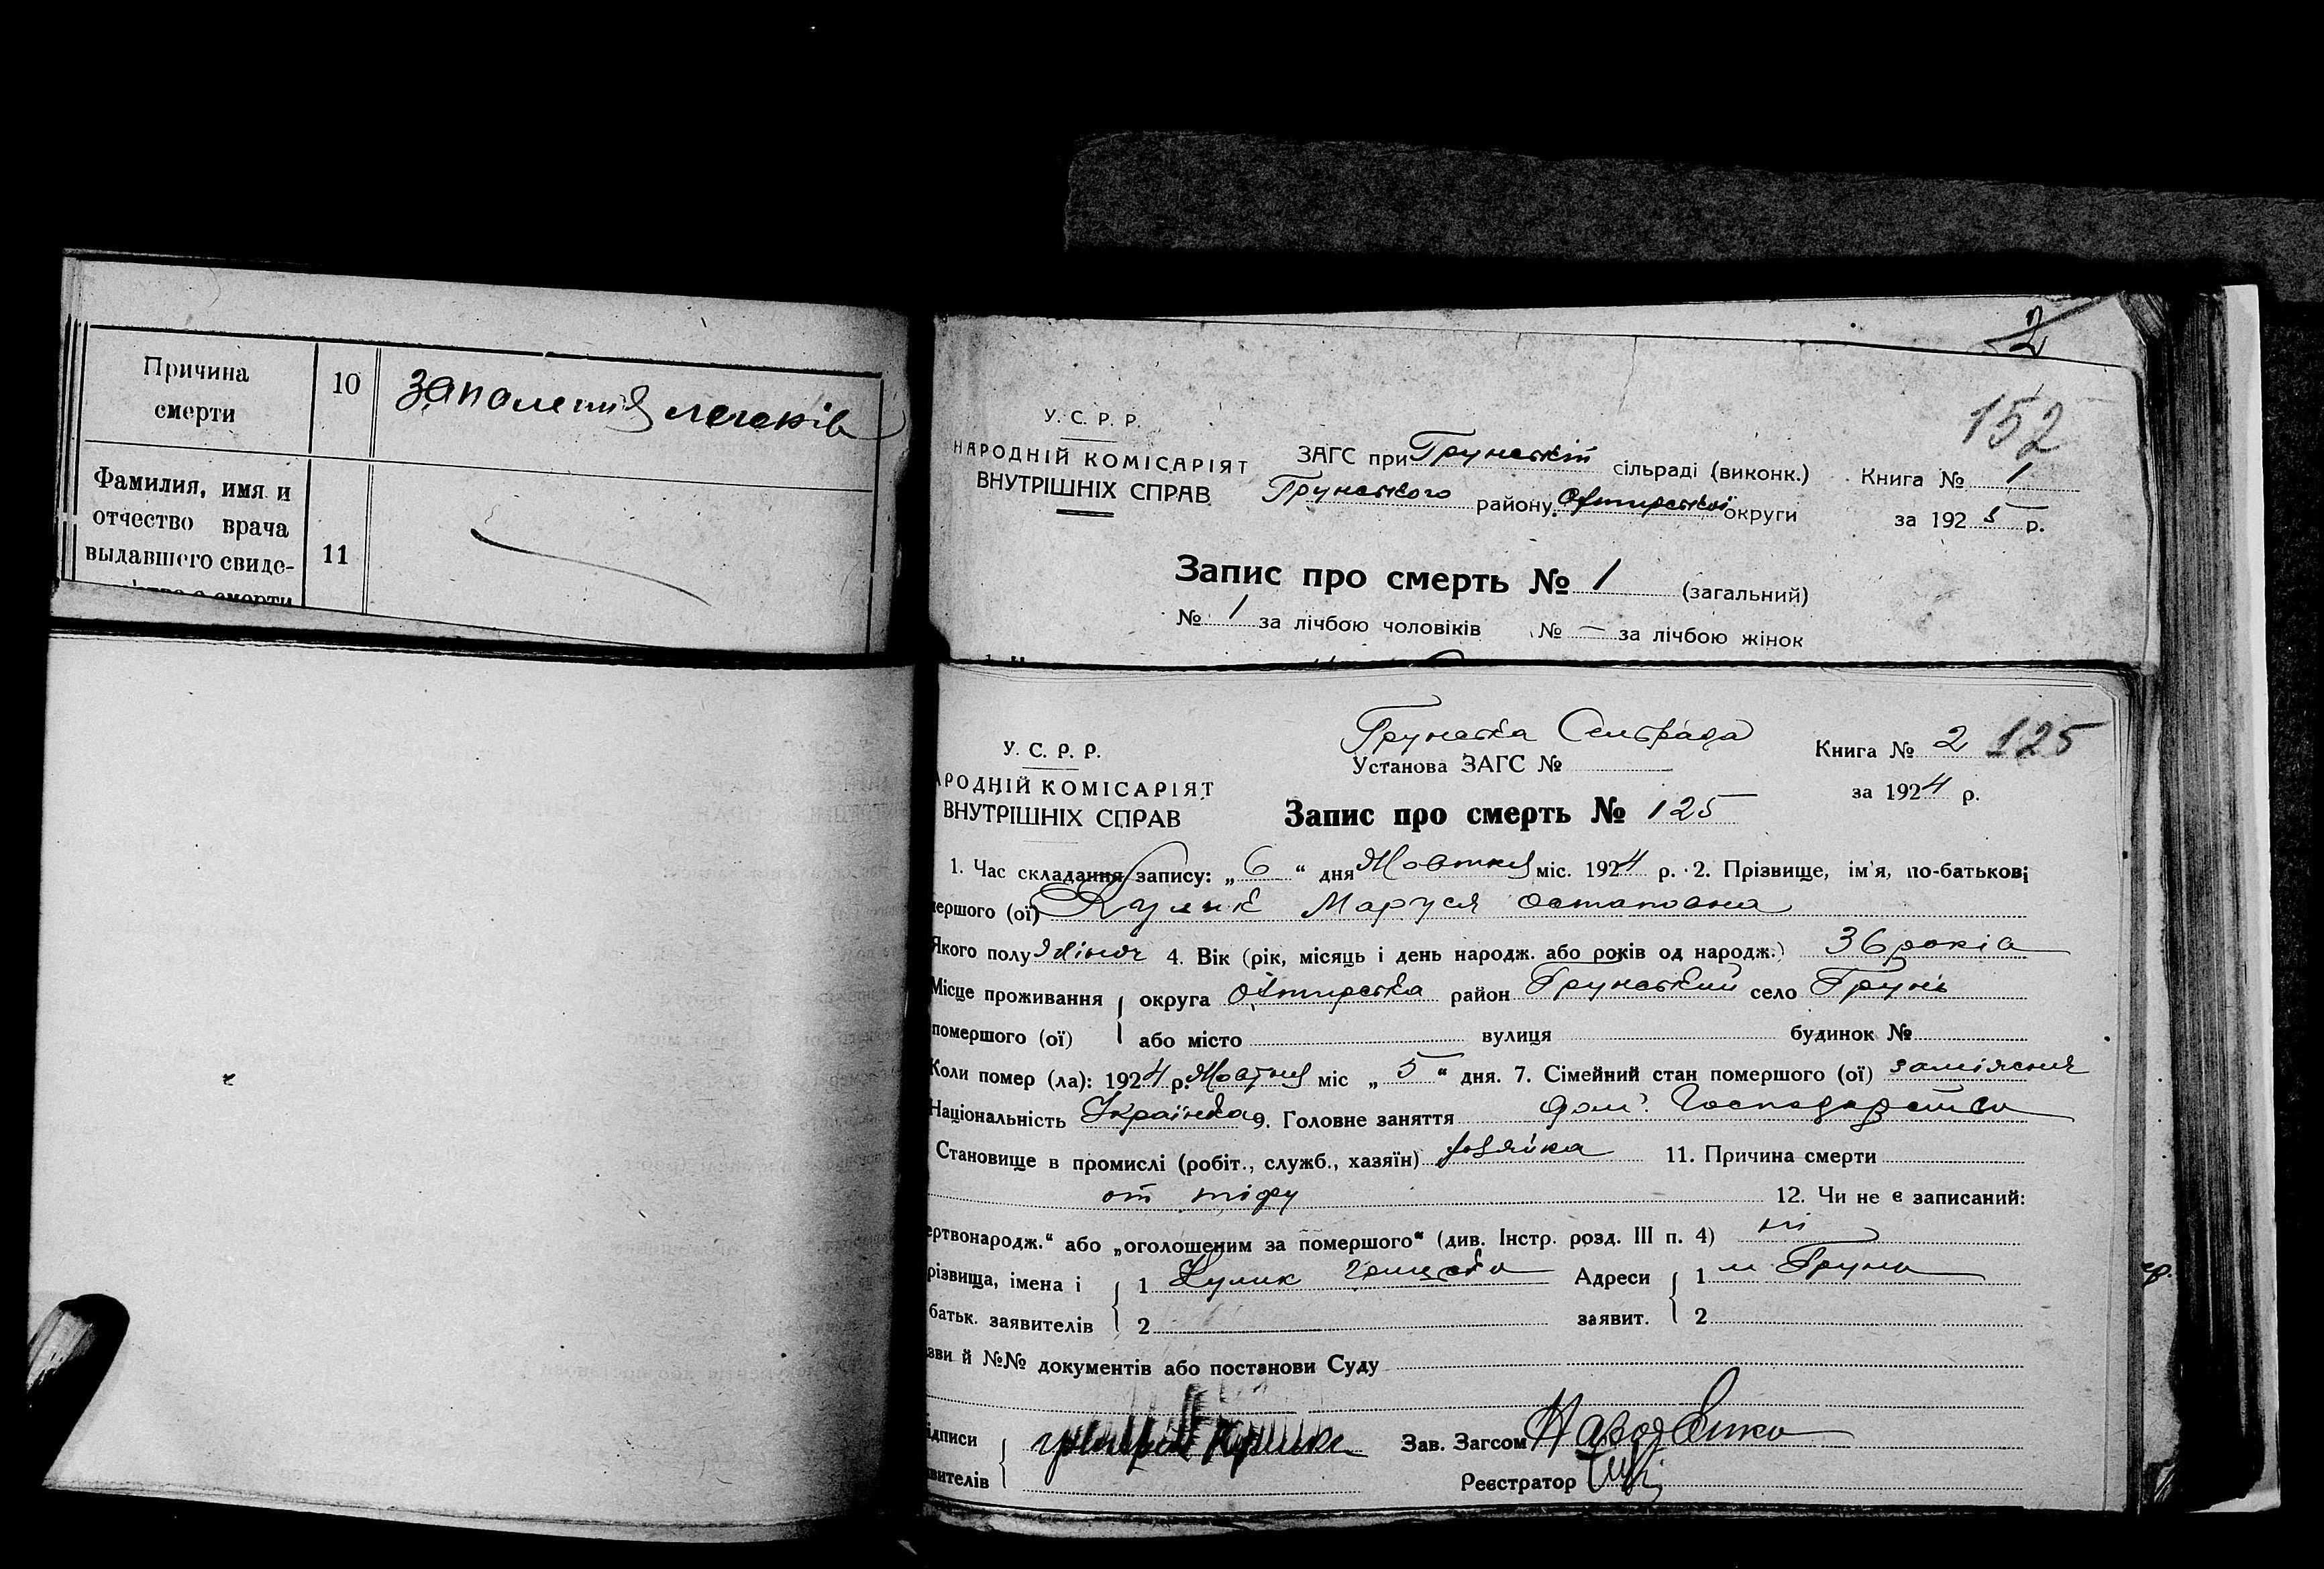 Причина
смерти
10
запаления легків
Фамилия, имя и
отчество врача
выдавшего свиде-
11
2
152
У. С. Р. Р.
НАРОДНІЙ КОМІСАРІЯТ
ВНУТРІШНІХ СПРАВ
ЗАГС при Грунській сільраді (виконк.)
Грунського району Охтирської округи
Книга № 1
за 1925 р.
Запис про смерть № 1 (загальний)
№ 1 за лічбою чоловіків № — за лічбою жінок
Грунська Сельрада
У. С. Р. Р.
РОДНІЙ КОМІСАРІЯТ
ВНУТРІШНІХ СПРАВ
Установа ЗАГС №
Книга № 2 125
за 1924 р.
Запис про смерть № 125
1. Час складання запису: „ 6 “ дня Жовтня міс. 1924 р. 2. Прізвище, ім'я, по-батькові
мершого (ої) Кулик Маруся Остаповна
Якого полу жіноч 4. Вік (рік, місяць і день народж. або років од народж.) 36 років
Місце проживання округа Охтирська район Грунський село Грунь
помершого (ої) або місто вулиця будинок №
Коли помер (ла): 1924 р. Жовтня міс „ 5 “ дня. 7. Сімейний стан помершого (ої) заміжня
Національність Українка 9. Головне заняття дом. Господарство
Становище в промислі (робіт., служб., хазяїн) хозяйка 11. Причина смерти
от тіфу 12. Чи не є записаний:
ертвонародж.“ або „оголошеним за помершого“ (див. Інстр. розд. III п. 4) ні
різвища, імена і 1 Кулик Адреси 1 м Грунь
батьк. заявителів 2 заявит. 2
зви й №№ документів або постанови Суду
ідписи
явителів
Зав. Загсом
Реєстратор